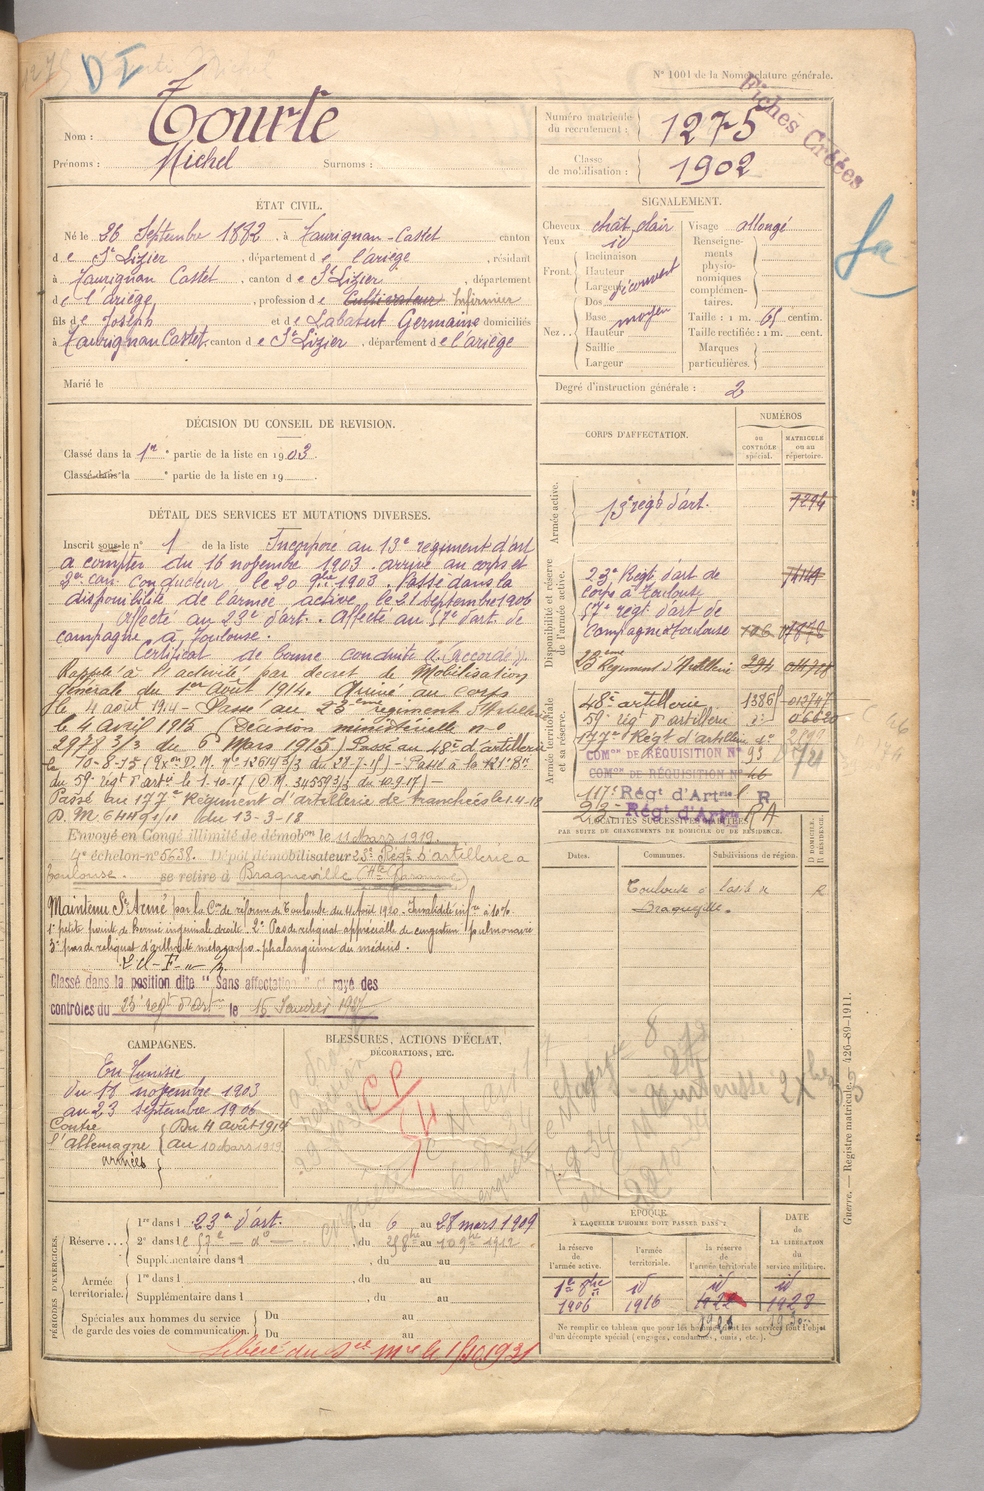 1275
D I
N° 1001 de la Nomenclature générale.
Fiches Créées
Nom : Tourte
Prénoms : Michel Surnoms :
Numéro matricule du recrutement : 1275
Classe de mobilisation : 1902
ÉTAT CIVIL.
Né le 26 Septembre 1882, à Taurignan-Castet, canton
de St Lizier, département de l'ariège, résidant
à Taurignan Castet, canton de St Lizier, département
de l'ariège, profession de Cultivateur Infirmier
fils de Joseph et de Labatut Germaine domiciliés
à Taurignan Castet, canton de St Lizier, département de l'ariège
Marié le
SIGNALEMENT.
Cheveux chât. clair Visage allongé
Yeux id
Front. Inclinaison
Hauteur
Largeur découvert
Nez.. Dos
Base moyen
Hauteur
Saillie
Largeur
Renseignements physionomiques complémentaires.
Taille : 1 m. 65 centim.
Taille rectifiée : 1 m. cent.
Marques particulières.
Degré d'instruction générale : 2
DÉCISION DU CONSEIL DE REVISION.
Classé dans la 1re partie de la liste en 1903.
Classé dans la e partie de la liste en 19
CORPS D'AFFECTATION.
NUMÉROS
au CONTRÔLE spécial.
MATRICULE ou au répertoire.
Armée active.
13e rég. d'art. 1294
Disponibilité et réserve de l'armée active.
23e Régt d'art de
corps à Toulouse
57e régt d'art de
Campagne Toulouse
23ème Régiment d'Artillerie
Armée territoriale et sa réserve.
48e artillerie 1386
59e régt d'artillerie
177e Régt d'artillerie
COMon DE RÉQUISITION N° 93
COMon DE RÉQUISITION N° 46
117e Régt d'Artie R
23e Régt d'Artie RA
DÉTAIL DES SERVICES ET MUTATIONS DIVERSES.
Inscrit sous le n° 1 de la liste Incorporé au 13e régiment d'art
à compter du 16 novembre 1903. arrivé au corps et
2e can. conducteur le 20 9bre 1903. Passé dans la
disponibilité de l'armée active le 21 septembre 1906
Affecté au 23e d'art. Affecté au 57e d'art. de
campagne à Toulouse.
Certificat de bonne conduite "Accordé".
Rappelé à l'activité par décret de Mobilisation
générale du 1er Août 1914. Arrivé au corps
le 4 août 1914 - Passé au 23ème régiment d'Artillerie
le 4 avril 1915 (Décision ministérielle n°
2978 2/3 du 6 Mars 1915) Passé au 48e d'artillerie
le 10-8-15 (Exon D.M. n° 12614 3/3 du 28-7-15) - Passé à la 121e Bie
du 59e régt d'artie le 1-10-17 (D.M. 34559 3/3 du 10.9.17) -
Passé au 177e Régiment d'artillerie de tranchées le 1-4-18
D.M. 6449 1/11 du 13-3-18
Envoyé en Congé illimité de démobon le 11 Mars 1919
4e échelon n° 5638. Dépôt démobilisateur 23e Régt d'artillerie à
Toulouse. se retire à Braqueville (Hte Garonne)
Maintenu St Armé par la Con de réforme de Toulouse du 4 Août 1920. Invalidité infre à 10%
1° petite pointe de hernie inguinale droite. 2° Pas de reliquat appréciable de congestion pulmonaire
3° pas de reliquat d'arthrite métacarpo-phalangienne du médius.
Classé dans la position dite "Sans affectation" et rayé des
contrôles du 23e régt d'artie le 15 Janvier 1927
LOCALITÉS SUCCESSIVES HABITÉES
PAR SUITE DE CHANGEMENTS DE DOMICILE OU DE RÉSIDENCE.
Dates. Communes. Subdivisions de région. D DOMICILE. R RÉSIDENCE.
Toulouse R
Braqueville.
CAMPAGNES.
En Tunisie
du 17 novembre 1903
au 23 septembre 1906
Contre l'Allemagne
Du 4 août 1914
au 10 Mars 1919
armées
BLESSURES, ACTIONS D'ÉCLAT,
DÉCORATIONS, ETC.
CP
PÉRIODES D'EXERCICES.
Réserve... 1re dans l 23e d'art. , du 6 au 28 mars 1909
2e dans le 57e - d° - , du au 1912
Supplémentaire dans l , du au
Armée territoriale. 1re dans l , du au
Supplémentaire dans l , du au
Spéciales aux hommes du service de garde des voies de communication. Du au
Du au
Libéré du Sce Mre le 1/10.1931
ÉPOQUE
À LAQUELLE L'HOMME DOIT PASSER DANS :
la réserve de l'armée active.
l'armée territoriale.
la réserve de l'armée territoriale
DATE de LA LIBÉRATION du service militaire.
1er 8bre 1906
id 1916
id 1922
id 1928
Ne remplir ce tableau que pour les hommes dont les services font l'objet
d'un décompte spécial (engagés, condamnés, omis, etc.).
Guerre. — Registre matricule. 426-89-1911.